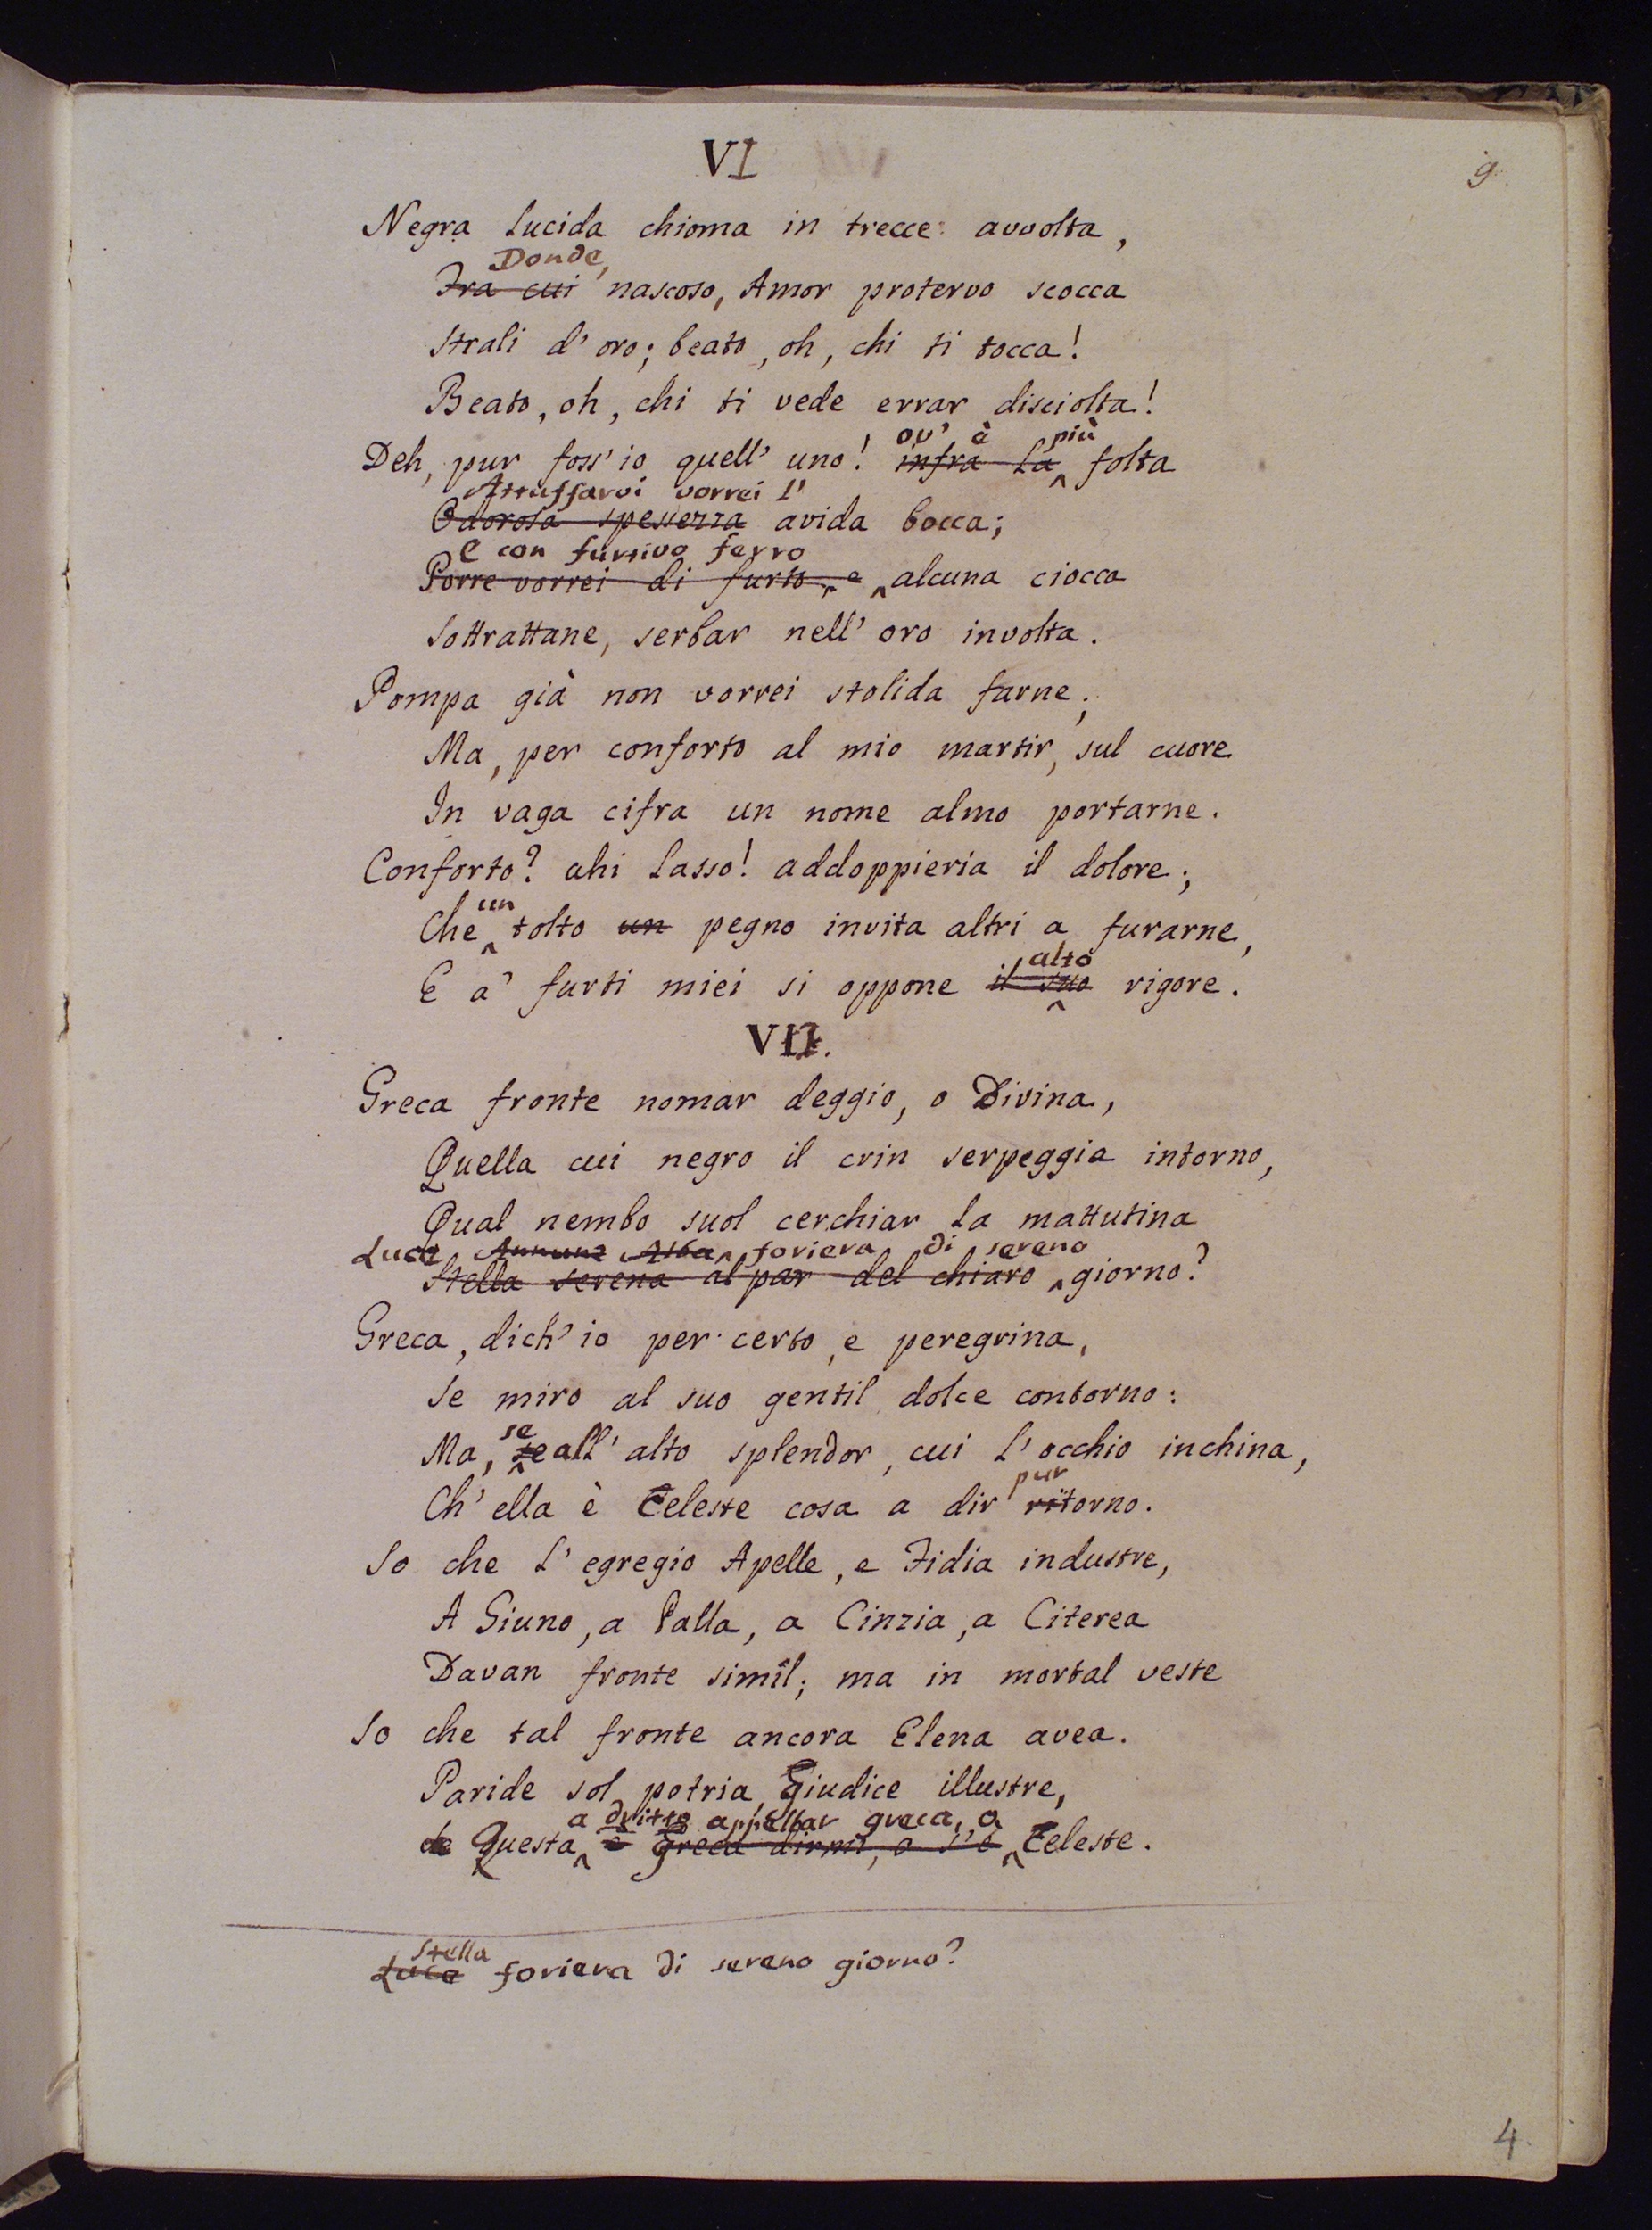 VI
9.
Negra lucida chioma in trecce avvolta,
Donde,
Fra cui nascoso, Amor protervo scocca
Strali d'oro; beato, oh, chi ti tocca!
Beato, oh, chi ti vede errar disciolta!
ov' è più
Deh, pur foss'io quell'uno! infra la folta
Attuffarvi vorrei l'
Odorosa spessezza avida bocca;
E con furtivo ferro
Porre vorrei di furto, e alcuna ciocca
Sottrattane, serbar nell'oro involta.
Pompa già non vorrei stolida farne;
Ma, per conforto al mio martir, sul cuore
In vaga cifra un nome almo portarne.
Conforto? ahi lasso! addoppieria il dolore;
un
Che tolto un pegno invita altri a furarne,
alto
E a' furti miei si oppone il suo rigore.
VII.
Greca fronte nomar deggio, o Divina,
Quella cui negro il crin serpeggia intorno,
Qual nembo suol cerchiar la mattutina
Luce Alba foriera di sereno
Stella serena al par del chiaro giorno?
Greca, dich'io per certo, e peregrina,
Se miro al suo gentil dolce contorno:
se
Ma, se all'alto splendor, cui l'occhio inchina,
pur
Ch'ella è Celeste cosa a dir ritorno.
So che l'egregio Apelle, e Fidia industre,
A Giuno, a Palla, a Cinzia, a Citerea
Davan fronte simìl; ma in mortal veste
So che tal fronte ancora Elena avea.
Paride sol potria, Giudice illustre,
a dritto appellar greca, o
Questa è greca dirmi, o s'è Celeste.
Stella
Luce foriera di sereno giorno?
4.